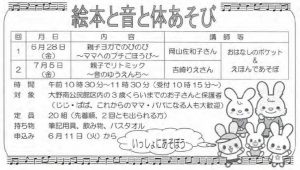 絵本と音と体あそび
回 月日 内容 講師等
1 6月28日(金) 親子ヨガでのびのび ～ママへのプチごほうび～ 岡山佐和子さん おはなしのポケット & えほんであそぼ
2 7月5日(金) 親子でリトミック ～音のゆうえんち～ 吉崎りえさん
時間 午前10時30分～11時30分(受付10時15分～)
対象 大野南公民館区内の3歳くらいまでのお子さんと保護者
(じじ・ばば、これからのママ・パパになる人も大歓迎)
定員 20組(先着順、2回とも出られる方)
持ち物 筆記用具、飲み物、バスタオル
申込み 6月11日(火)から
いっしょにあそぼう